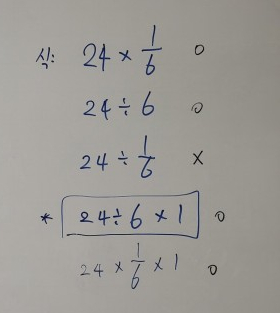 식: 24 × 1/6 o
24 ÷ 6 o
24 ÷ 1/6 x
* 24 ÷ 6 × 1 o
24 × 1/6 × 1 o